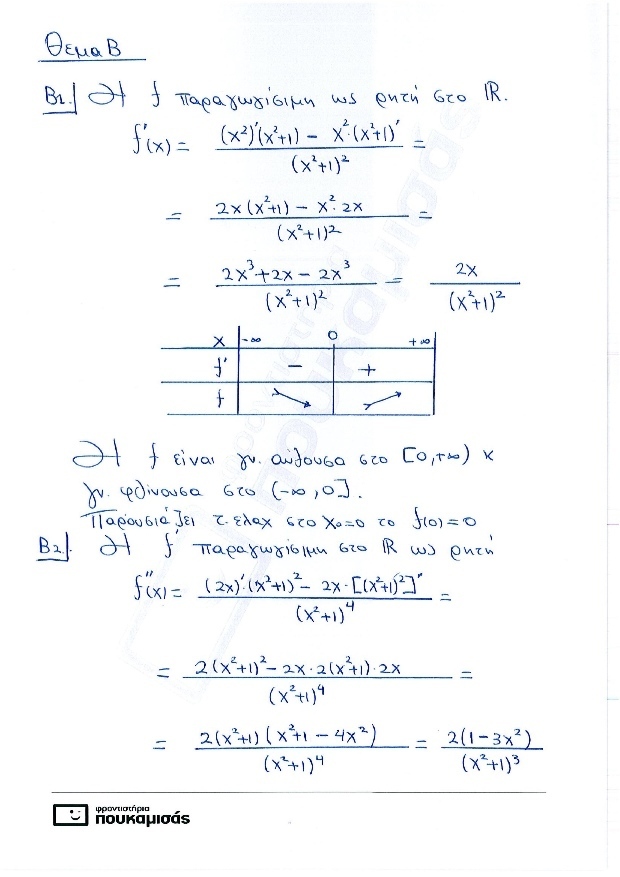 Θεμα Β
Β1. Η f παραγωγίσιμη ως ρητή στο ℝ.
f'(x) = \frac{(x²)'(x²+1) - x²·(x²+1)'}{(x²+1)²} =
= \frac{2x(x²+1) - x²·2x}{(x²+1)²} =
= \frac{2x³+2x-2x³}{(x²+1)²} = \frac{2x}{(x²+1)²}
x -∞ 0 +∞
f' - +
f ↘ ↗
Η f είναι γν. αύξουσα στο [0,+∞) κ
γν. φθίνουσα στο (-∞,0].
Παρουσιάζει τ. ελαχ στο x₀=0 το f(0)=0
Β2. Η f' παραγωγίσιμη στο ℝ ως ρητή
f''(x) = \frac{(2x)'·(x²+1)² - 2x·[(x²+1)²]'}{(x²+1)⁴} =
= \frac{2(x²+1)² - 2x·2(x²+1)·2x}{(x²+1)⁴} =
= \frac{2(x²+1)(x²+1-4x²)}{(x²+1)⁴} = \frac{2(1-3x²)}{(x²+1)³}
φροντιστήρια
πουκαμισάς